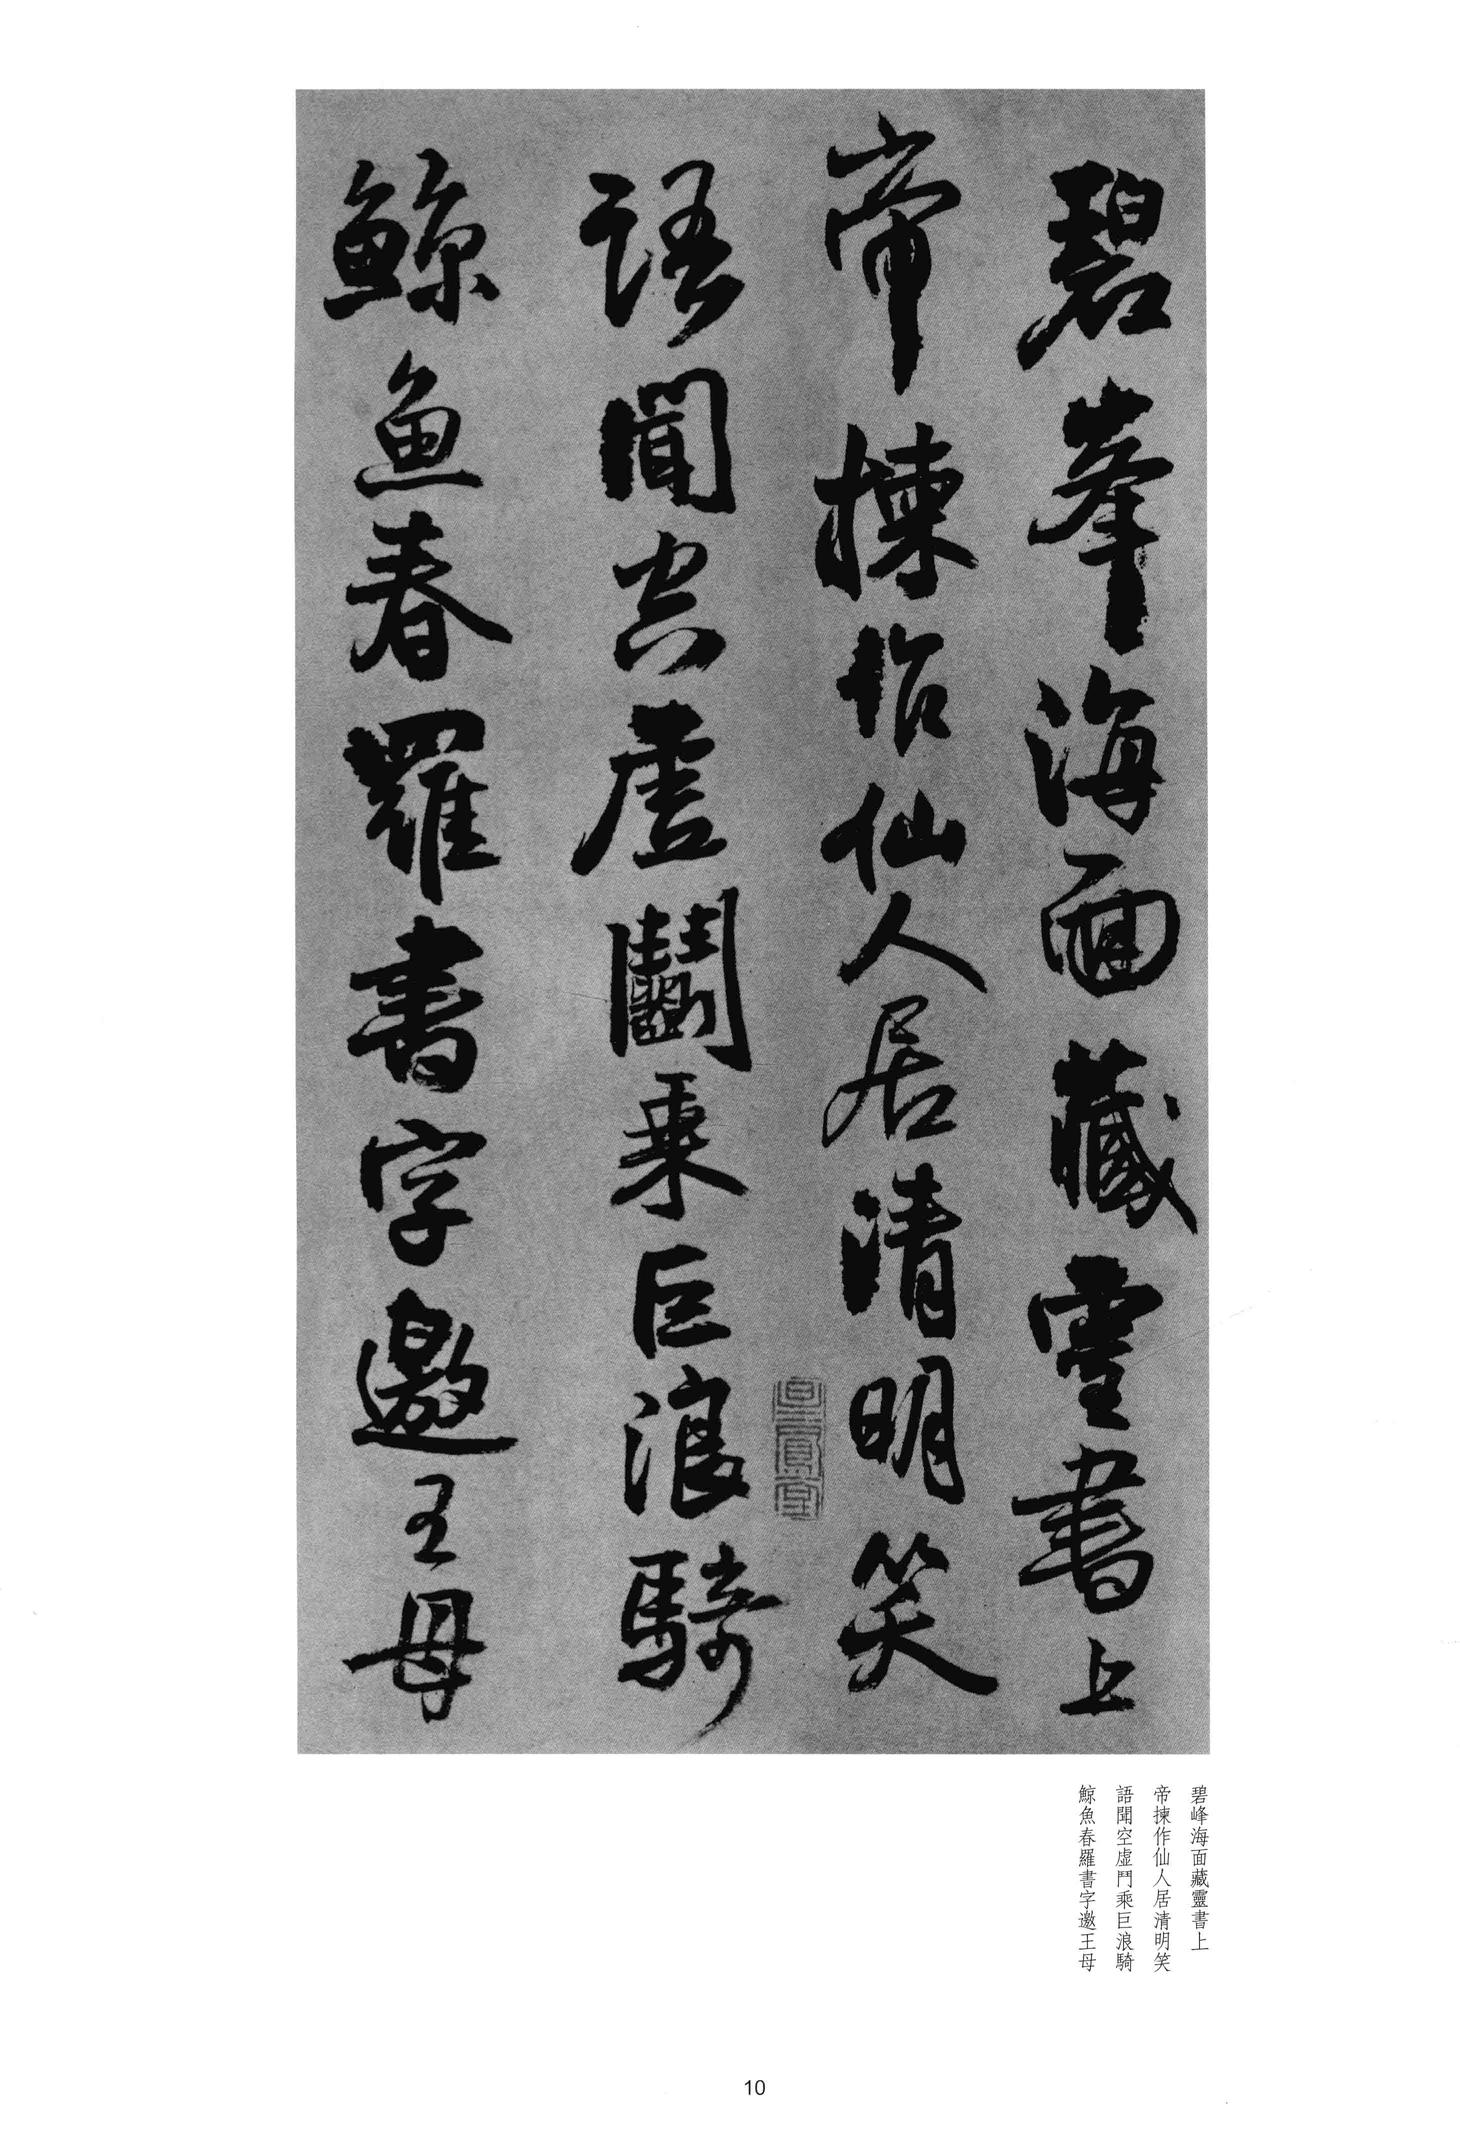 碧峯海面藏靈書上
帝揀作仙人居清明笑
語聞空虛鬬乘巨浪騎
鯨魚春羅書字邀王母
碧峰海面藏靈書上
帝揀作仙人居清明笑
語聞空虛鬥乘巨浪騎
鯨魚春羅書字邀王母
10